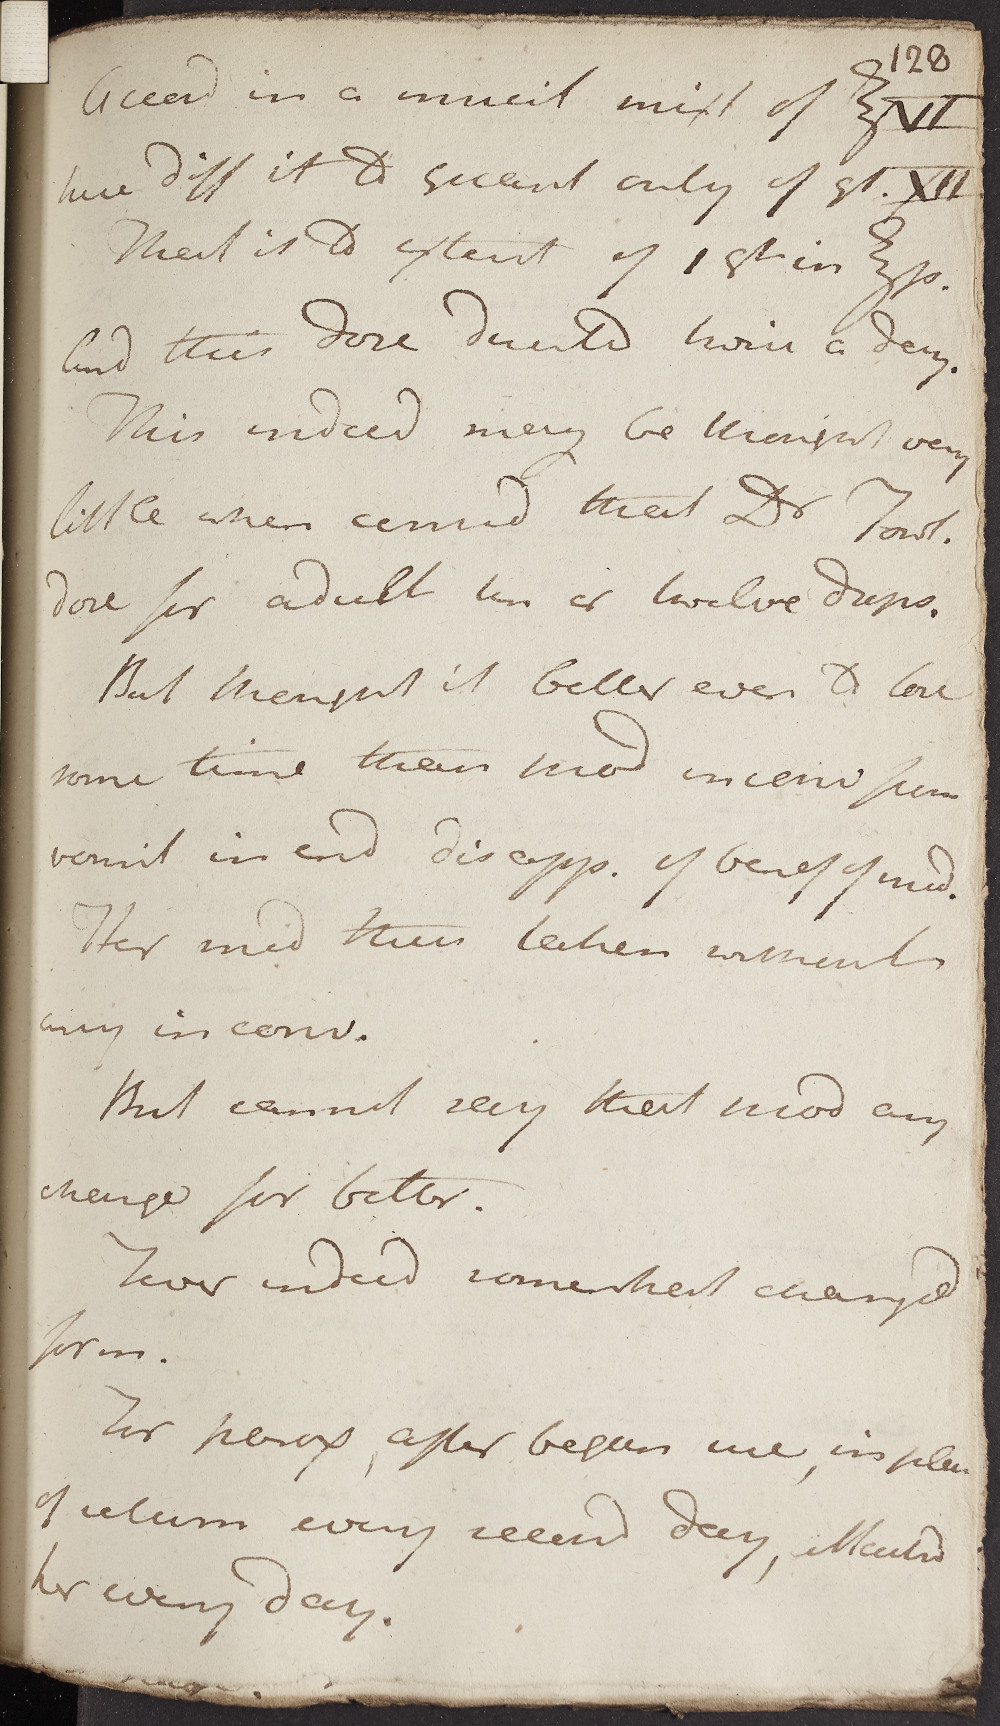 128
Accord in a mucil mixt of ℥VI
here diff it to quant only of gt. XII
That is to extent of 1 gt in ℥ſs.
And this dose directd twice a day.
This indeed may be thought very
little when consid that Dr Fowl.
dose for adult ten or twelve drops.
But thought it better even to lose
some time than prod inconv from
vomit in end disapp. of benef of med.
Her med thus taken without
any inconv.
But cannot say that prod any
change for better.
Fever indeed somewhat changed
form.
For parox, after begun use, in place
of return every second day, attackd
her every day.